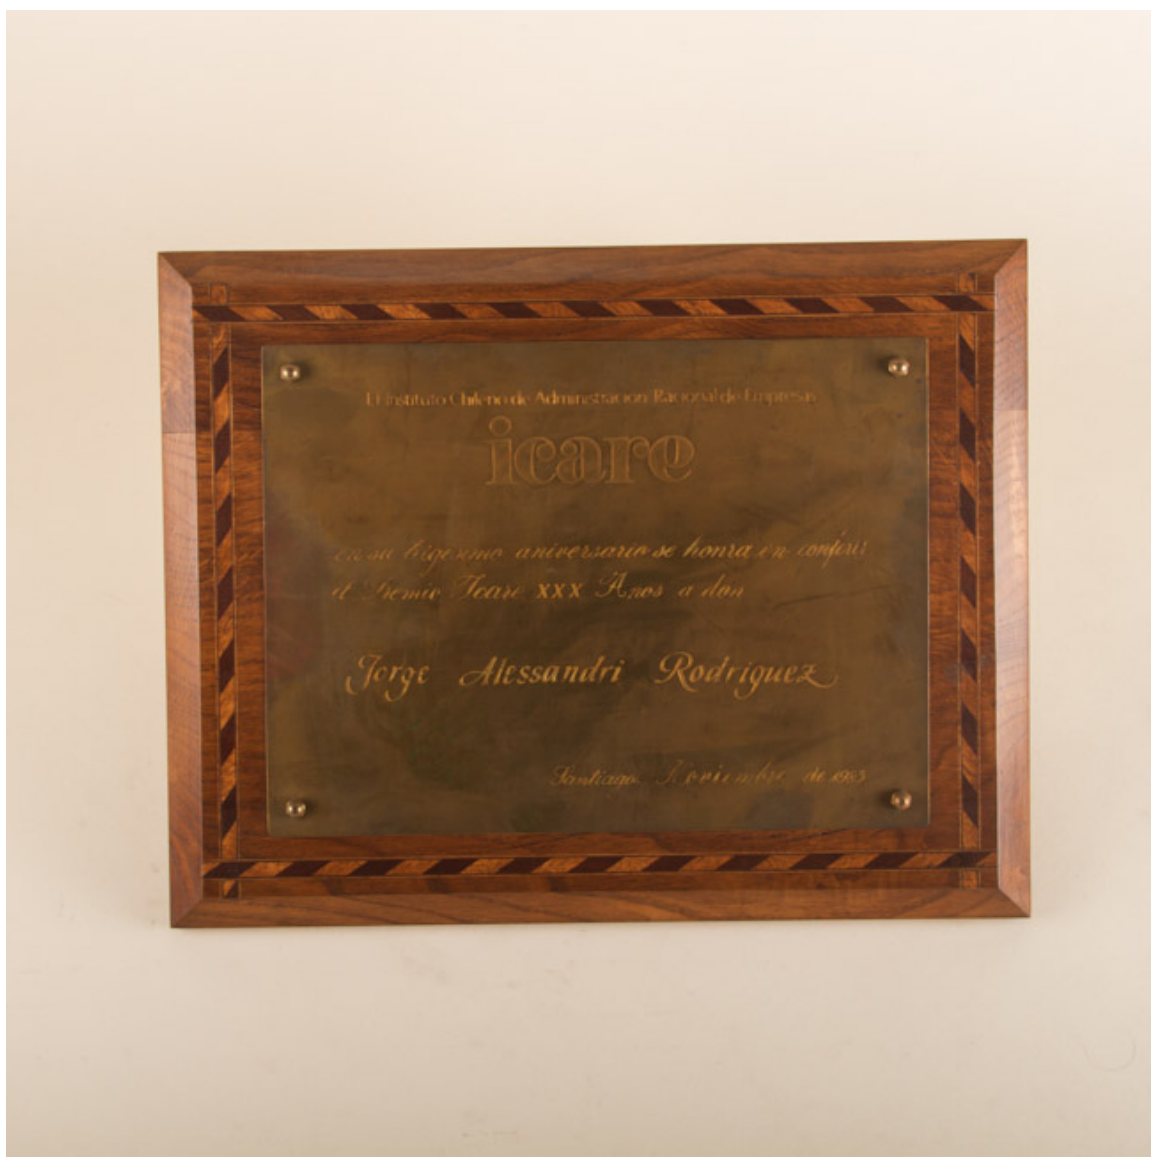 El Instituto Chileno de Administracion Racional de Empresas
icare
en su trigesimo aniversario se honra en conferir
el Premio Icare XXX Anos a don
Jorge Alessandri Rodriguez
Santiago Noviembre de 1983